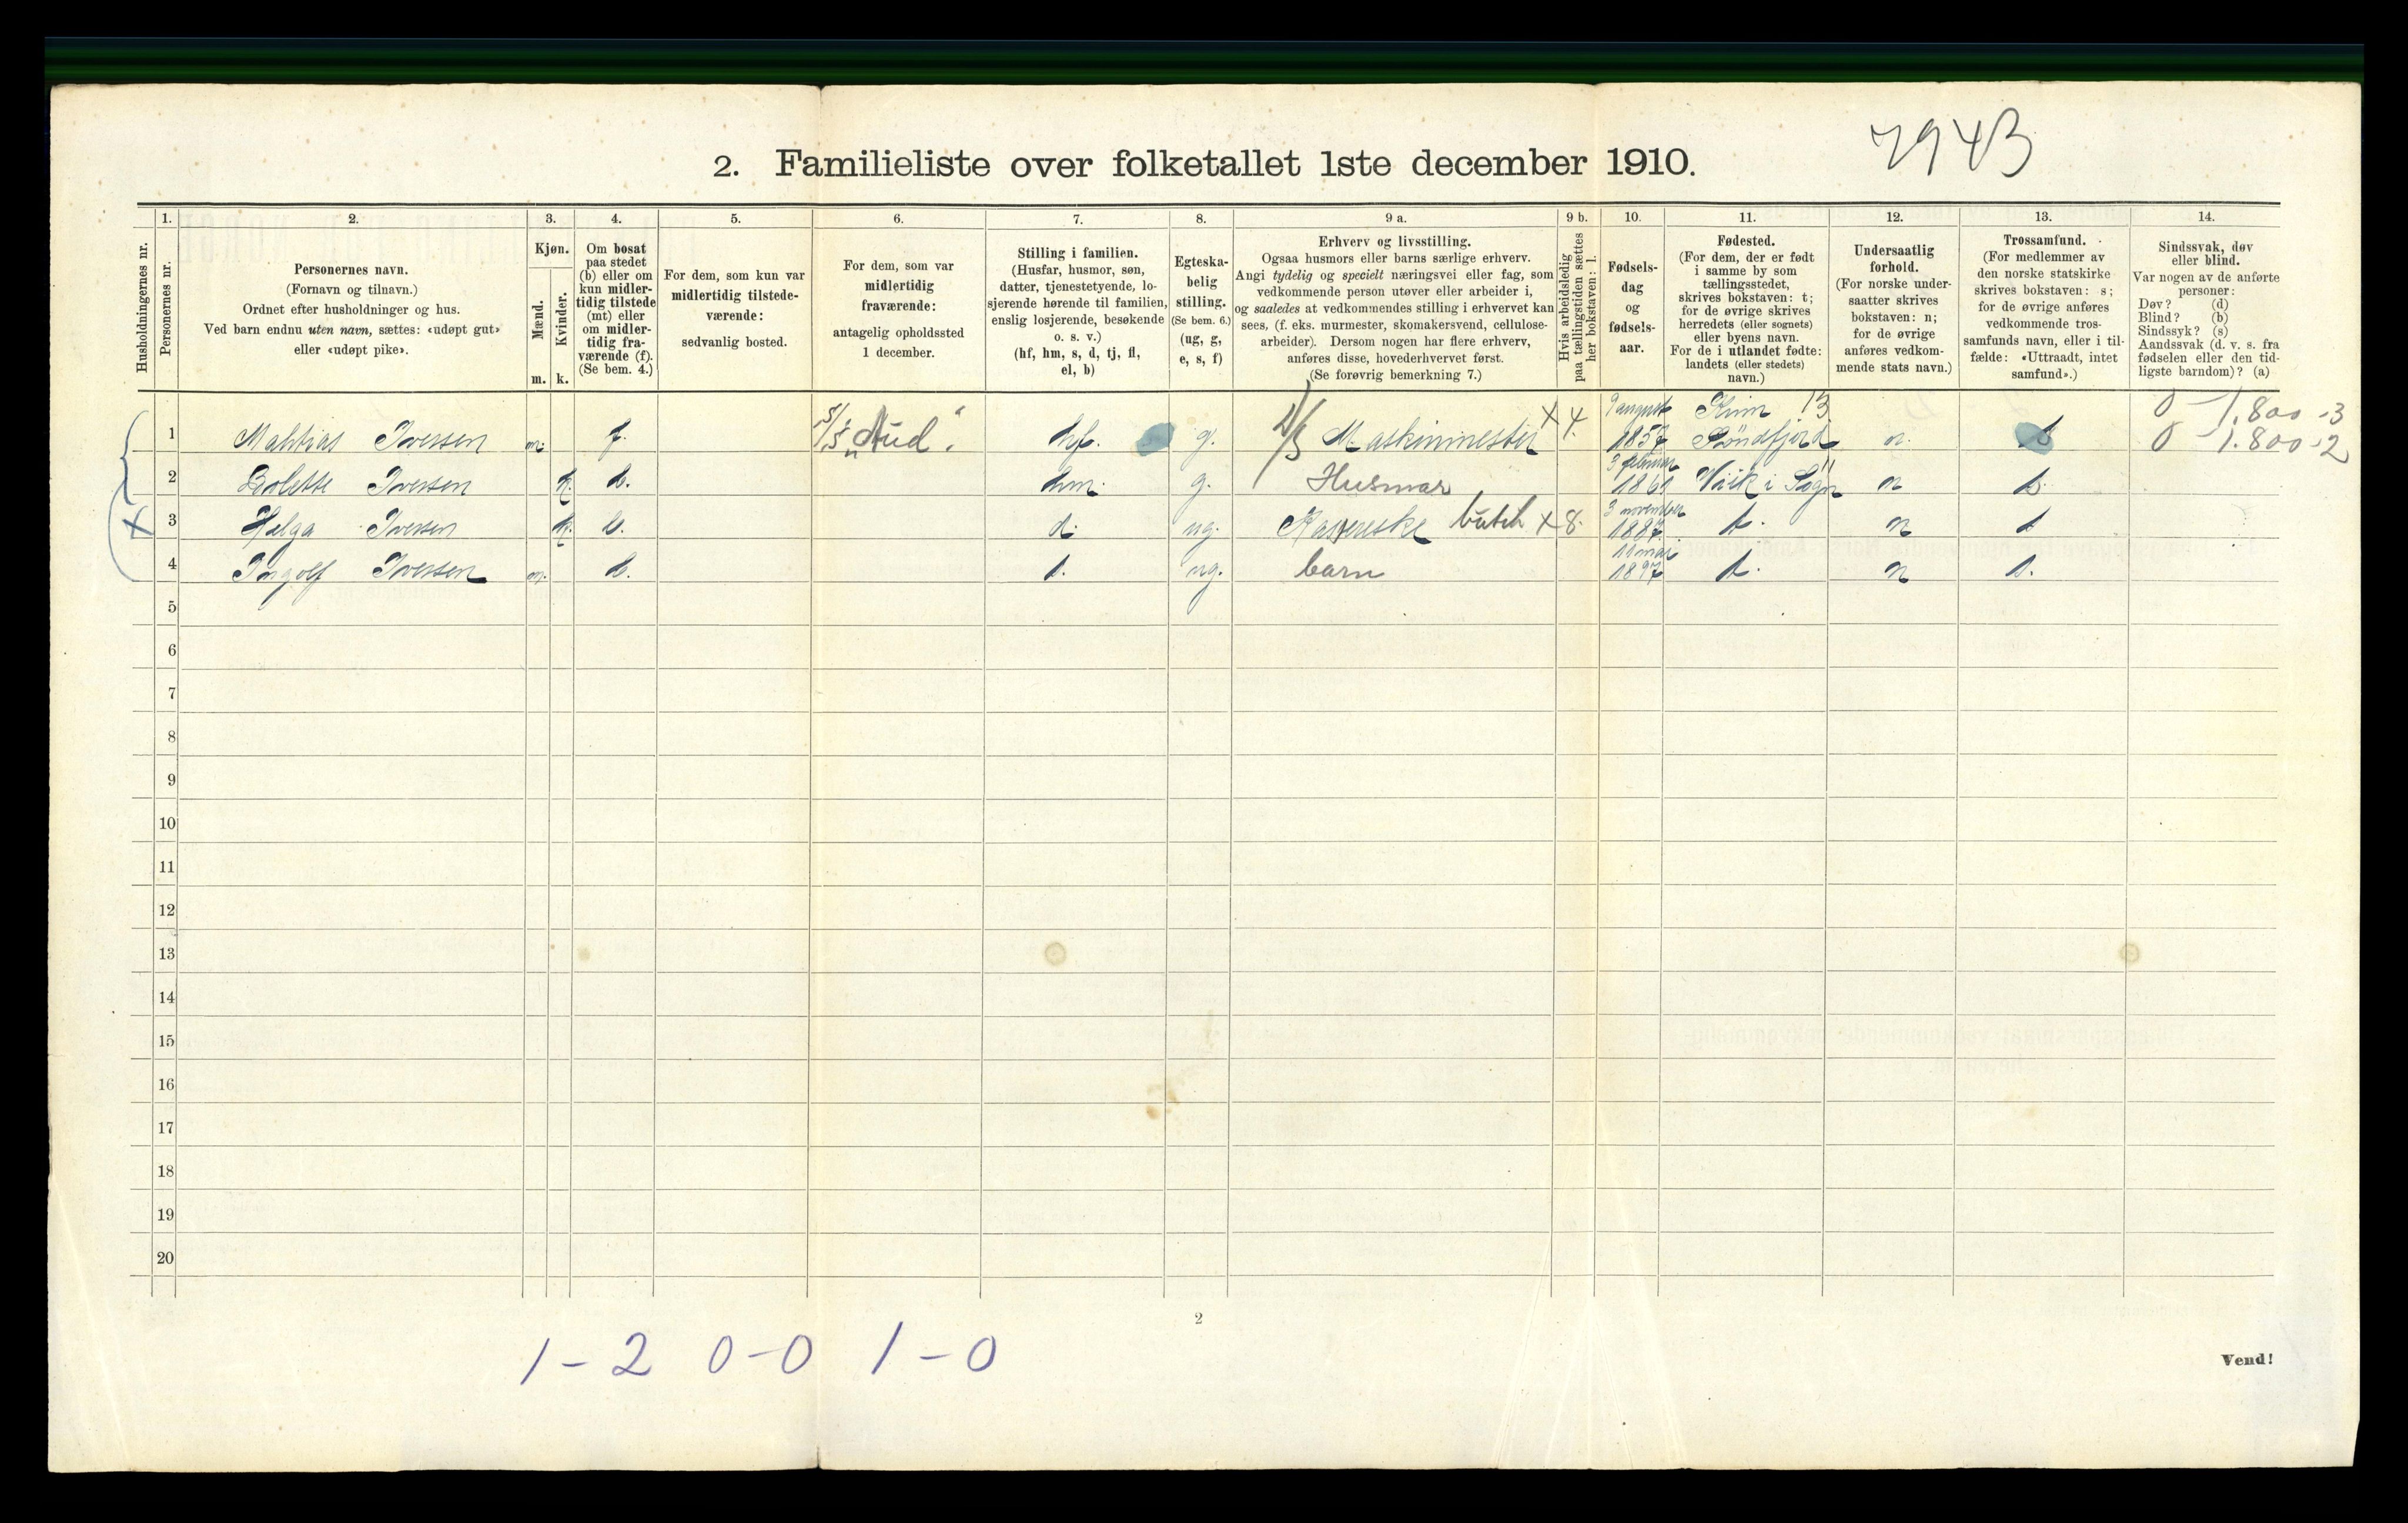 7943
2. Familieliste over folketallet 1ste december 1910.
Husholdningernes nr.
1.
Personernes nr.
2.
Personernes navn.
(Fornavn og tilnavn.)
Ordnet efter husholdninger og hus.
Ved barn endnu uten navn, sættes: «udøpt gut»
eller «udøpt pike».
3.
Kjøn.
Mænd.
Kvinder.
m. k.
4.
Om bosat
paa stedet
(b) eller om
kun midler-
tidig tilstede
(mt) eller
om midler-
tidig fra-
værende (f).
(Se bem. 4.)
5.
For dem, som kun var
midlertidig tilstede-
værende:
sedvanlig bosted.
6.
For dem, som var
midlertidig
fraværende:
antagelig opholdssted
1 december.
7.
Stilling i familien.
(Husfar, husmor, søn,
datter, tjenestetyende, lo-
sjerende hørende til familien,
enslig losjerende, besøkende
o. s. v.)
(hf, hm, s, d, tj, fl,
el, b)
8.
Egteska-
belig
stilling.
(Se bem. 6.)
(ug, g,
e, s, f)
9 a.
Erhverv og livsstilling.
Ogsaa husmors eller barns særlige erhverv.
Angi tydelig og specielt næringsvei eller fag, som
vedkommende person utøver eller arbeider i,
og saaledes at vedkommendes stilling i erhvervet kan
sees, (f. eks. murmester, skomakersvend, cellulose-
arbeider). Dersom nogen har flere erhverv,
anføres disse, hovederhvervet først.
(Se forøvrig bemerkning 7.)
9 b.
Hvis arbeidsledig
paa tællingstiden sættes
her bokstaven: l.
10.
Fødsels-
dag
og
fødsels-
aar.
11.
Fødested.
(For dem, der er født
i samme by som
tællingsstedet,
skrives bokstaven: t;
for de øvrige skrives
herredets (eller sognets)
eller byens navn.
For de i utlandet fødte:
landets (eller stedets)
navn.)
12.
Undersaatlig
forhold.
(For norske under-
saatter skrives
bokstaven: n;
for de øvrige
anføres vedkom-
mende stats navn.)
13.
Trossamfund.
(For medlemmer av
den norske statskirke
skrives bokstaven: s;
for de øvrige anføres
vedkommende tros-
samfunds navn, eller i til-
fælde: «Uttraadt, intet
samfund».)
14.
Sindssvak, døv
eller blind.
Var nogen av de anførte
personer:
Døv? (d)
Blind? (b)
Sindssyk? (s)
Aandssvak (d. v. s. fra
fødselen eller den tid-
ligste barndom)? (a)
1 Mathias Iversen m. f. hf. g. Maskinmester x 4. 9 august 1857 Søndfjord n. s 0 - 1.800 -3
0 - 1.800 -2
2 Iversen k. b. hm. g. Husmor 3 februar 1861 Vik i Sogn n s.
3 Helga Iversen k. b. d. ug. butik x 8. 3 november 1887 t. n s
4 Ingolf Iversen m. b. s. ug. barn 11 mai 1897 t. n s.
5
6
7
8
9
10
11
12
13
14
15
16
17
18
19
20
2
1-2 0-0 1-0
Vend!